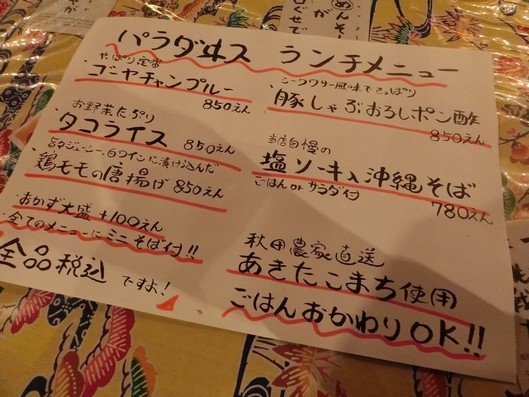 パラダヰス ランチメニュー
やっぱり定番
ゴーヤチャンプルー
850えん
お野菜たっぷり
タコライス 850えん
鶏モモの唐揚げ 850えん
おかず大盛 +100えん
全てのメニューにミニそば付!!
全品税込ですよ!
シークワサー風味でさっぱり
豚しゃぶおろしポン酢
850えん
当店自慢の
塩ソーキ入沖縄そば
ごはん or サラダ付 780えん
秋田農家直送
あきたこまち使用
ごはんおかわりOK!!